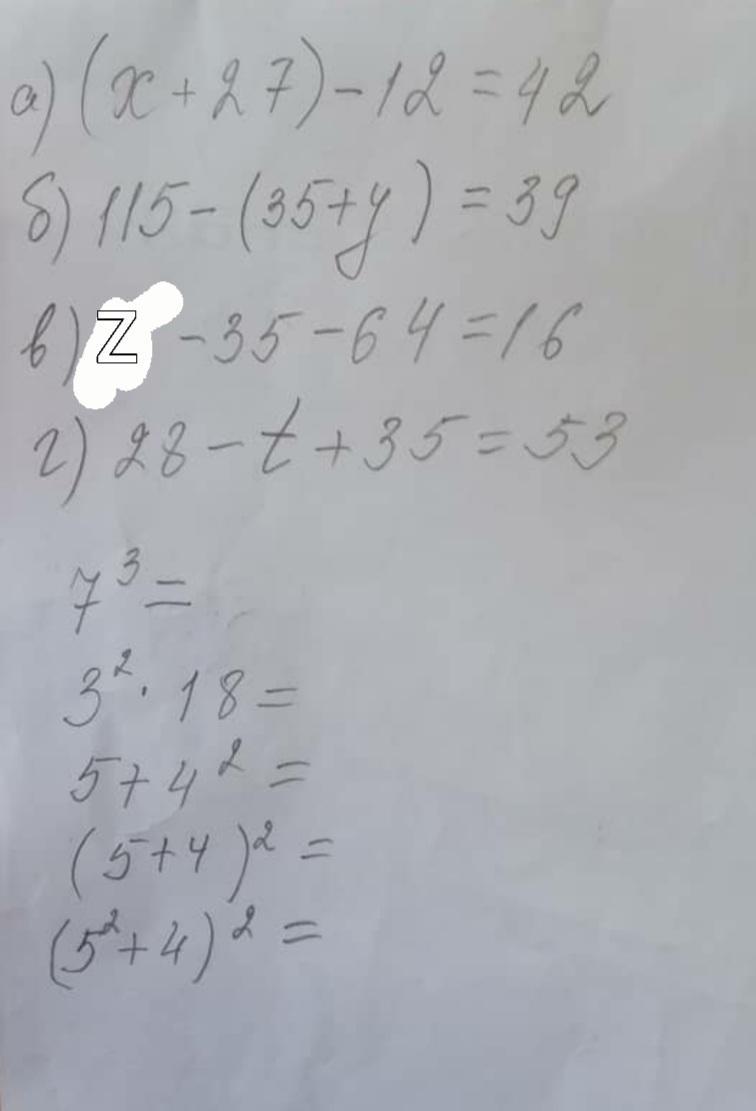 а) (x + 27) - 12 = 42
б) 115 - (35 + y) = 39
в) Z - 35 - 64 = 16
г) 28 - t + 35 = 53
7³ =
3² · 18 =
5 + 4² =
(5 + 4)² =
(5² + 4)² =